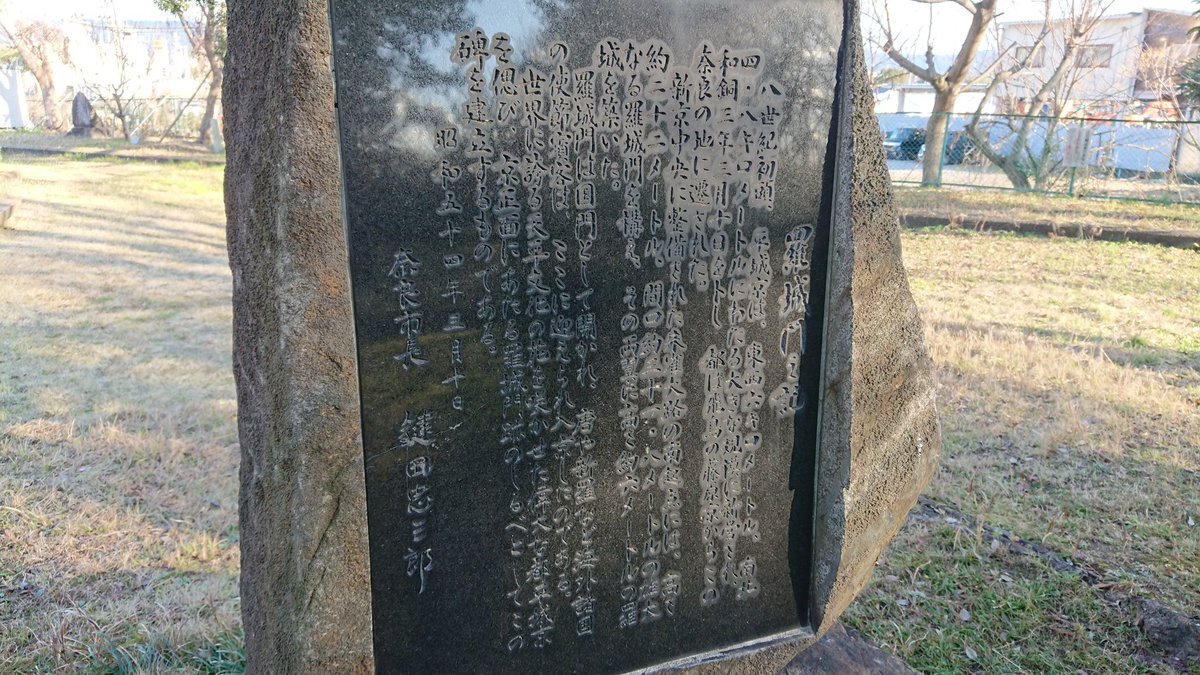 羅城門之碑
八世紀初頭 平城宮は、東西六キロメートル、南北
四・八キロメートルにわたる大きな規模に新営され
和銅三年三月十日をトし 都は飛鳥の藤原京からこの
奈良の地に遷された。
新京中央に整備された朱雀大路の南端には、高さ
約二十二メートル、間口約三十一・八メートルの壮大
なる羅城門を構え、その両翼に高さ約六メートルの羅
城を築いた。
羅城門は国門として開かれ、唐や新羅など海外諸国
の使節賓客は、ここに迎えられ入京したのである。
世界に誇る天平文化の花を咲かせた壮大な都平城京
を偲び、京正面にあたる羅城門跡のしるべとしてこの
碑を建立するものである。
昭和五十四年三月十日
奈良市長 鍵田忠三郎